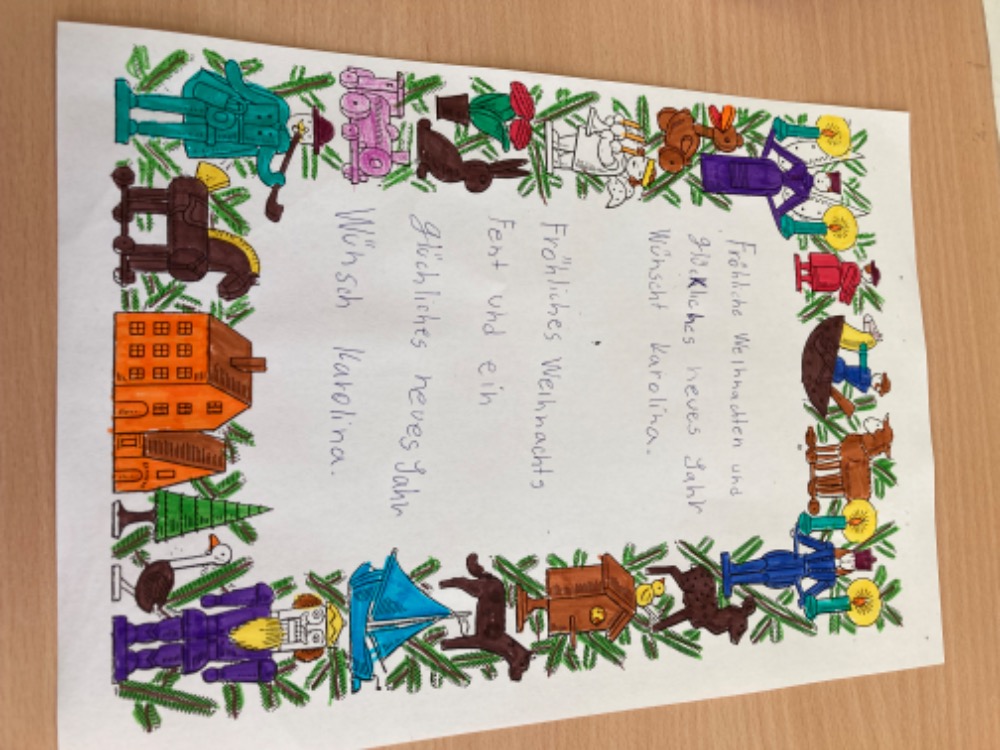 Fröhliche Weihnachten und
glückliches neues Jahr
Wünscht Karolina.
Fröhliches Weihnachts
Fent und ein
glüchliches neues Jahr
Wünsch Karolina.